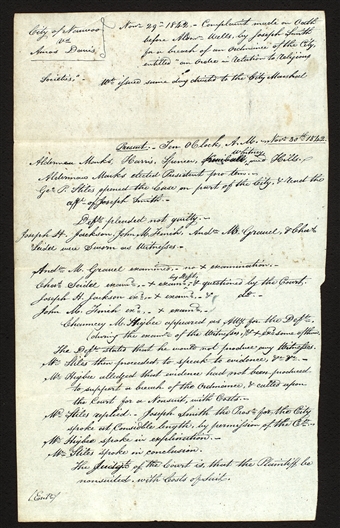 City of Nauvoo
vs
Amos Davis
Novr 29th 1842. - Complaint made on Oath
before Aldn Wells, by Joseph Smith
for a breach of an Ordinance of the City,
entitled "an Ordce in Relation to Religious
Societies." Wt issued same day directed to the City Marshal
Present. Ten OClock, A. M. Novr 30th 1842.
Aldermen Marks, Harris, Spencer, Whitney and Hills.
Aldermen Marks elected President pro tem.
Geo. P. Stiles opened the Case on part of the City, & read the
afft. of Joseph Smith.
Deft. pleaded not guilty.
Joseph H. Jackson, John M. Finch, Andw M. Gravel, & Chas
Seidel were Sworn as Witnesses.
Andw M. Gravel examined. no X examination.
Chas Seidel examd. X examd by Deft. & questioned by the Court.
Joseph H. Jackson exd. X examd. & do.
John M. Finch exd. X examd.
Chauncey M. Higbee appeared as Atty for the Deft.
(during the examn of the Witnesses,
The Deft. stated that he would not produce any Witnesses.
Mr Stiles then proceeded to speak to evidence, &c. &c.
Mr Higbee alledged that evidence had not been produced
to support a breach of the Ordinance, & called upon
the Court for a Nonsuit, with Costs.
Mr Stiles replied. Joseph Smith the for the City
spoke at Considble length, by permission of the Ct.
Mr Higbee spoke in explanation.
Mr Stiles spoke in conclusion.
The Judgt of the Court is, that the Plaintiff be
nonsuited, with Costs of suit.